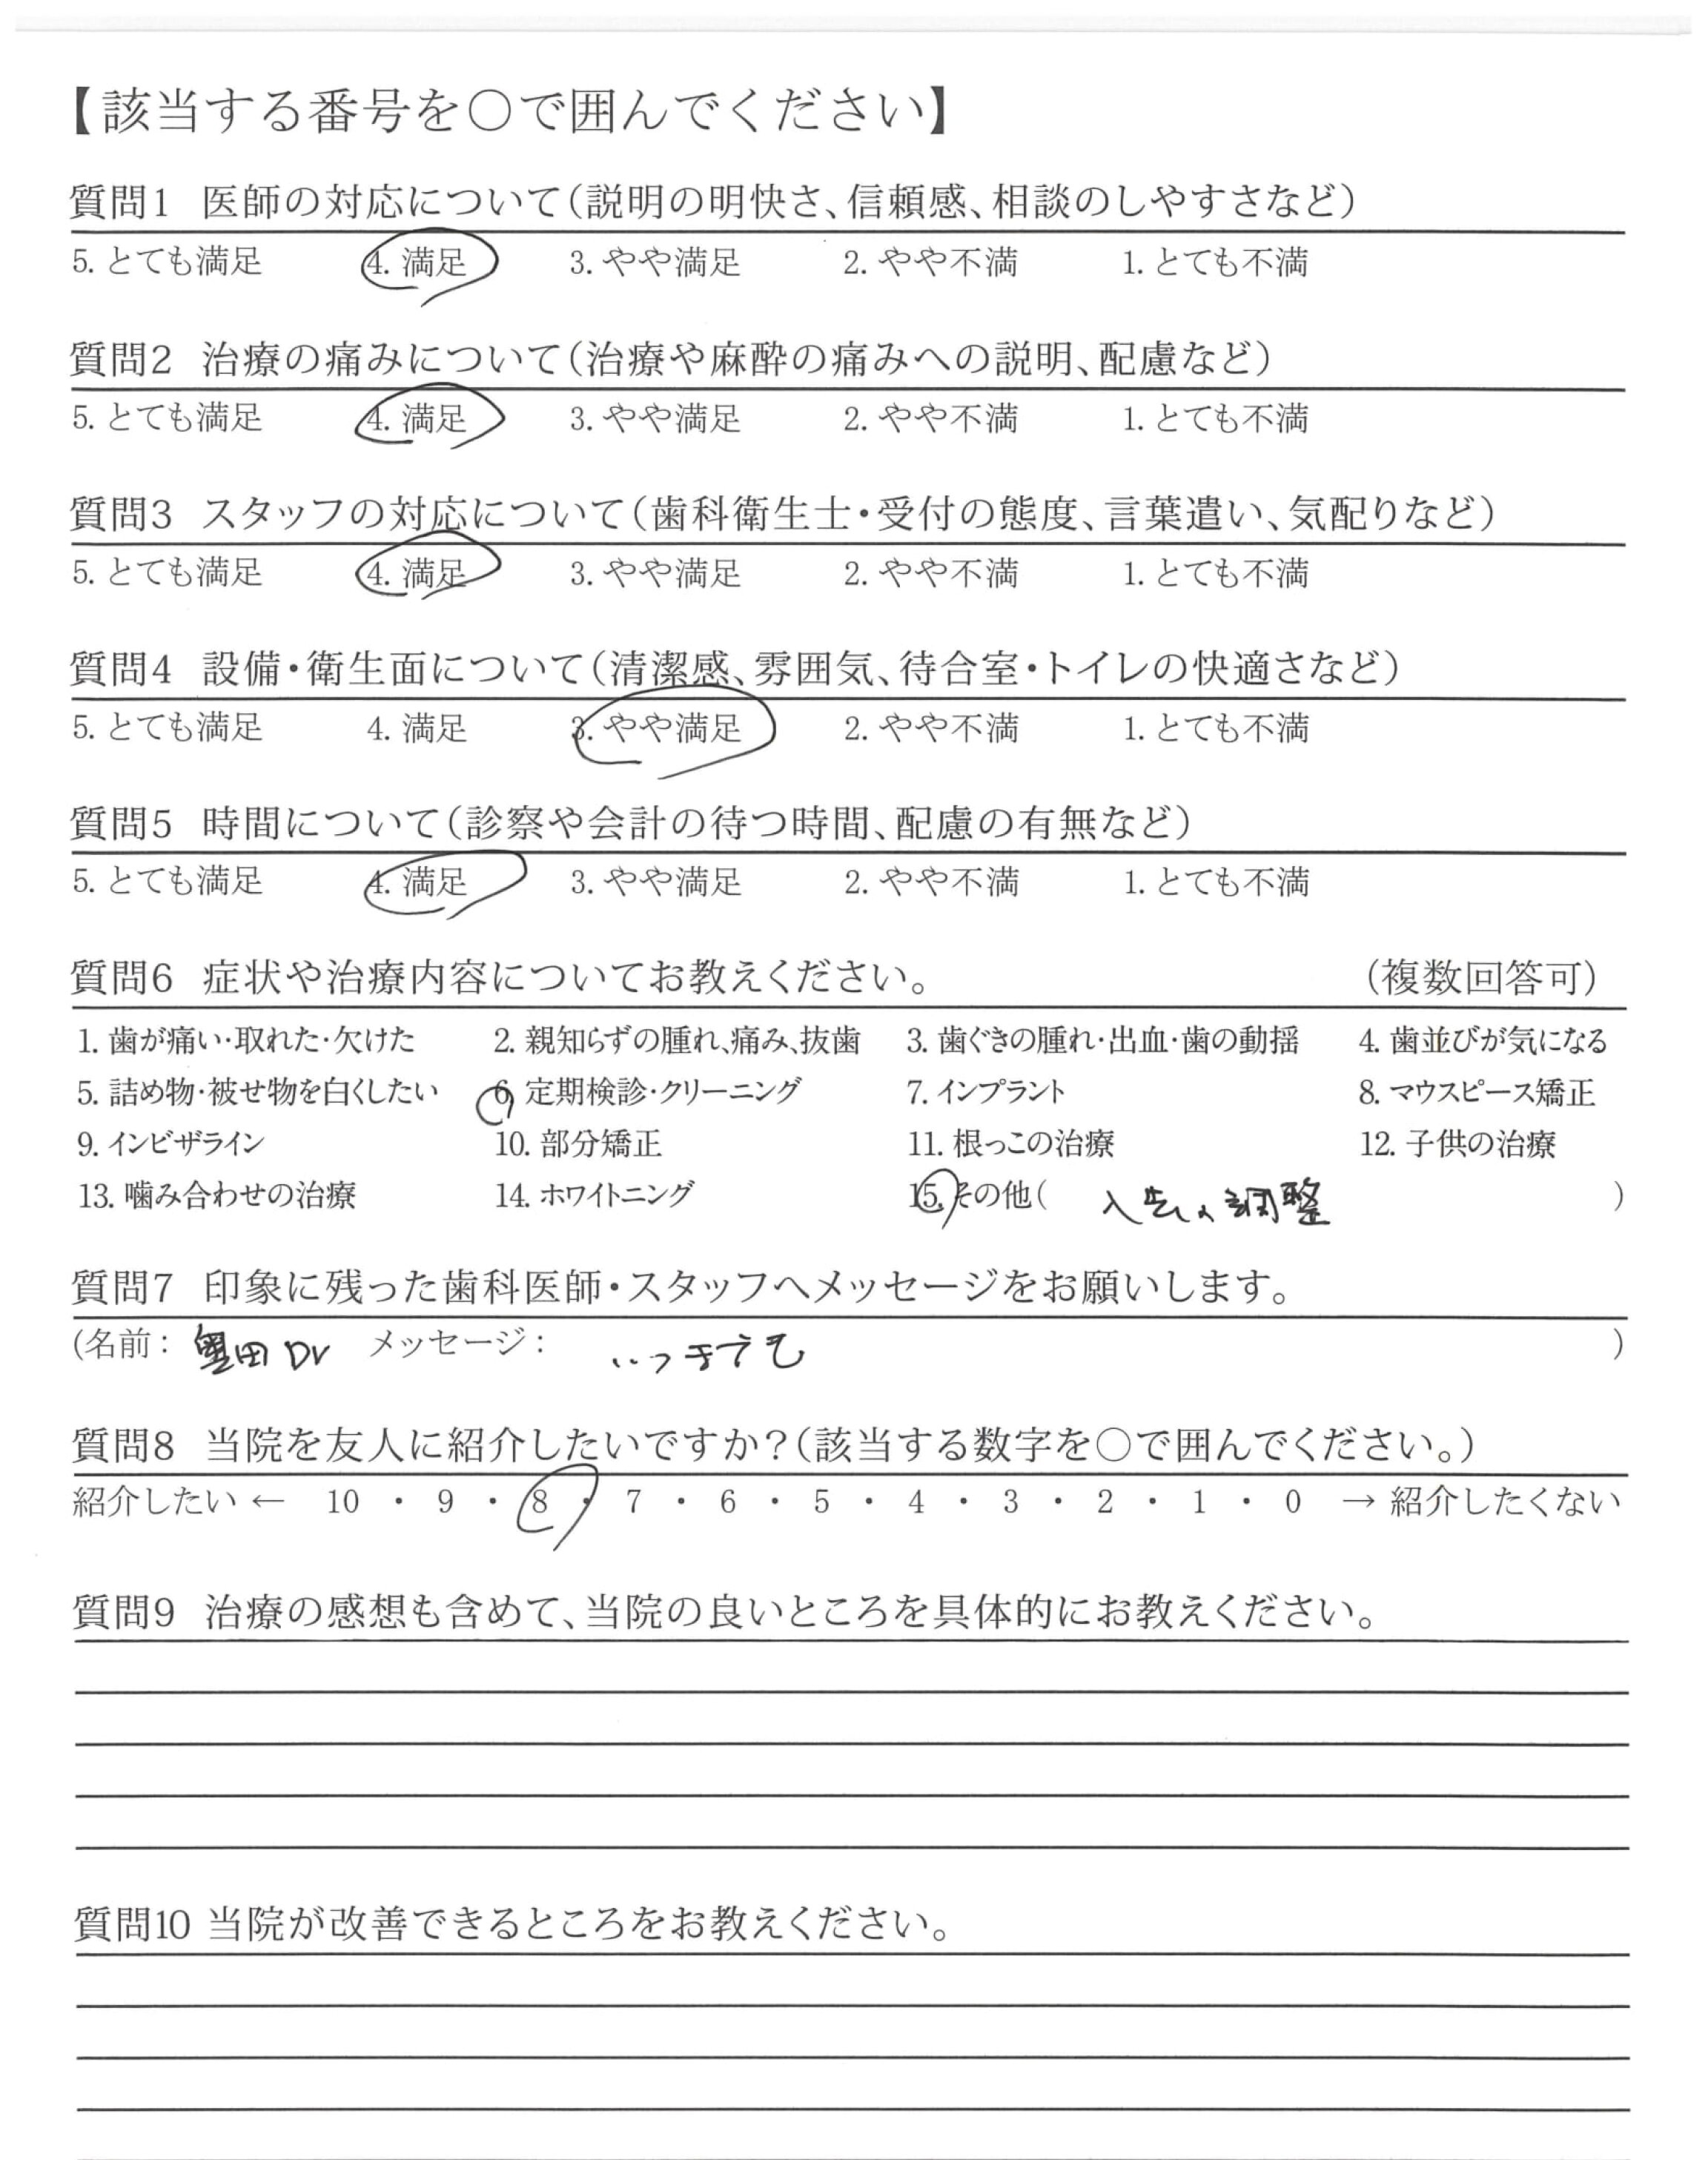 【該当する番号を○で囲んでください】
質問1 医師の対応について(説明の明快さ、信頼感、相談のしやすさなど)
5. とても満足 4. 満足 3. やや満足 2. やや不満 1. とても不満
質問2 治療の痛みについて(治療や麻酔の痛みへの説明、配慮など)
5. とても満足 4. 満足 3. やや満足 2. やや不満 1. とても不満
質問3 スタッフの対応について(歯科衛生士・受付の態度、言葉遣い、気配りなど)
5. とても満足 4. 満足 3. やや満足 2. やや不満 1. とても不満
質問4 設備・衛生面について(清潔感、雰囲気、待合室・トイレの快適さなど)
5. とても満足 4. 満足 3. やや満足 2. やや不満 1. とても不満
質問5 時間について(診察や会計の待つ時間、配慮の有無など)
5. とても満足 4. 満足 3. やや満足 2. やや不満 1. とても不満
質問6 症状や治療内容についてお教えください。 (複数回答可)
1. 歯が痛い・取れた・欠けた 2. 親知らずの腫れ、痛み、抜歯 3. 歯ぐきの腫れ・出血・歯の動揺 4. 歯並びが気になる
5. 詰め物・被せ物を白くしたい 6. 定期検診・クリーニング 7. インプラント 8. マウスピース矯正
9. インビザライン 10. 部分矯正 11. 根っこの治療 12. 子供の治療
13. 噛み合わせの治療 14. ホワイトニング 15. その他( 入歯の調整 )
質問7 印象に残った歯科医師・スタッフへメッセージをお願いします。
(名前： 奥田Dr メッセージ： いつまでも )
質問8 当院を友人に紹介したいですか?(該当する数字を○で囲んでください。)
紹介したい ← 10 ・ 9 ・ 8 ・ 7 ・ 6 ・ 5 ・ 4 ・ 3 ・ 2 ・ 1 ・ 0 → 紹介したくない
質問9 治療の感想も含めて、当院の良いところを具体的にお教えください。
質問10 当院が改善できるところをお教えください。